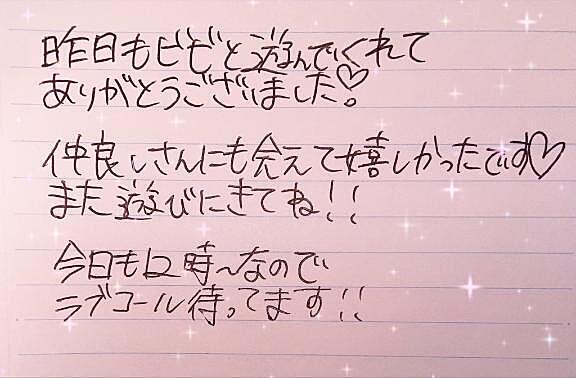 昨日もビビと遊んでくれて
ありがとうございました♡。
仲良しさんにも会えて嬉しかったです♡
また遊びにきてね!!
今日も12時〜なので
ラブコール待ってます!!